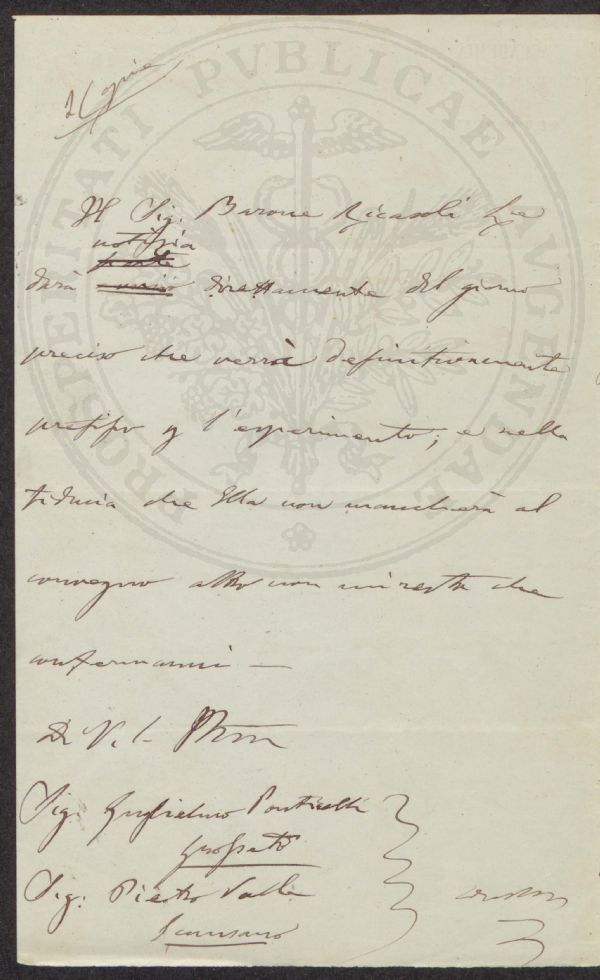 PROSPERITATI PVBLICAE AVGENDAE
Il Sig. Barone Ricasoli Le
notizia
darà direttamente del giorno
preciso che verrà definitivamente
prefisso p l'esperimento; e nella
fiducia che Ella non mancherà al
convegno altro non mi resta che
confermarmi —
Di V. S.
Sig. Guglielmo Ponticelli
Grosseto
Sig: Pietro Valle
Scansano